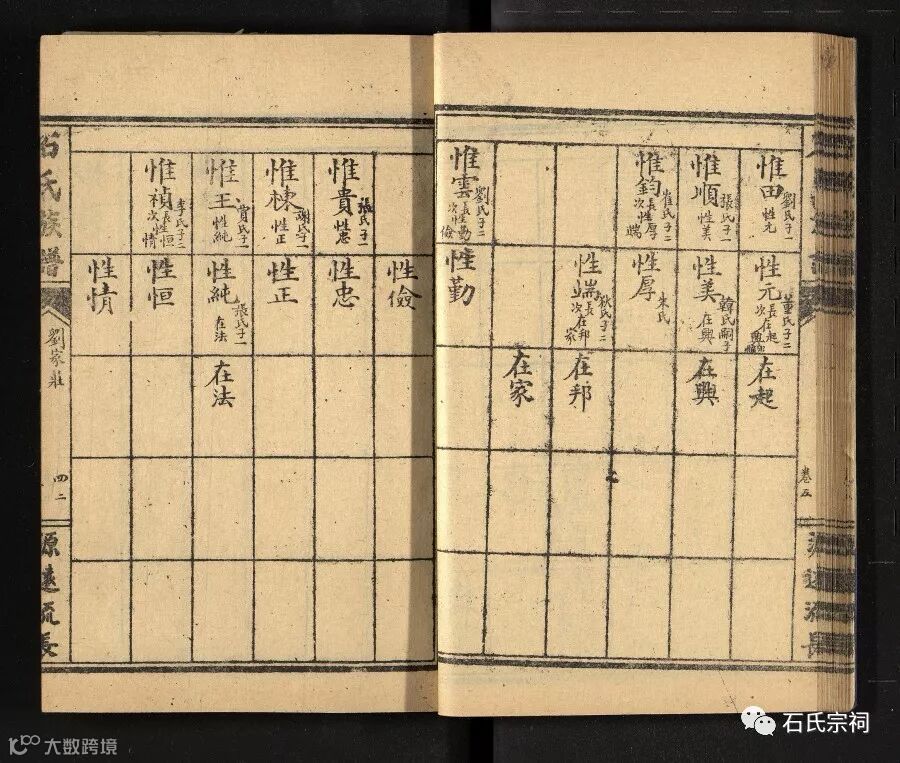 卷五
惟田
劉氏子一
性元
惟順
張氏子一
性美
惟鈞
崔氏子二
長性厚
次性端
惟雲
劉氏子二
長性勤
次性儉
性元
董氏子二
長在起
次在興
性美
韓氏嗣子
在興
性厚
朱氏
性端
狄氏子二
長在邦
次在家
性勤
在起
在興
在邦
在家
惟貴
張氏子一
性忠
惟棟
謝氏子一
性正
惟王
賈氏子一
性純
惟禎
李氏子二
長性恒
次性情
性儉
性忠
性正
性純
張氏子一
在法
性恒
性情
在法
石氏族譜
劉家莊
四二
源遠流長
石氏宗祠
大数跨境